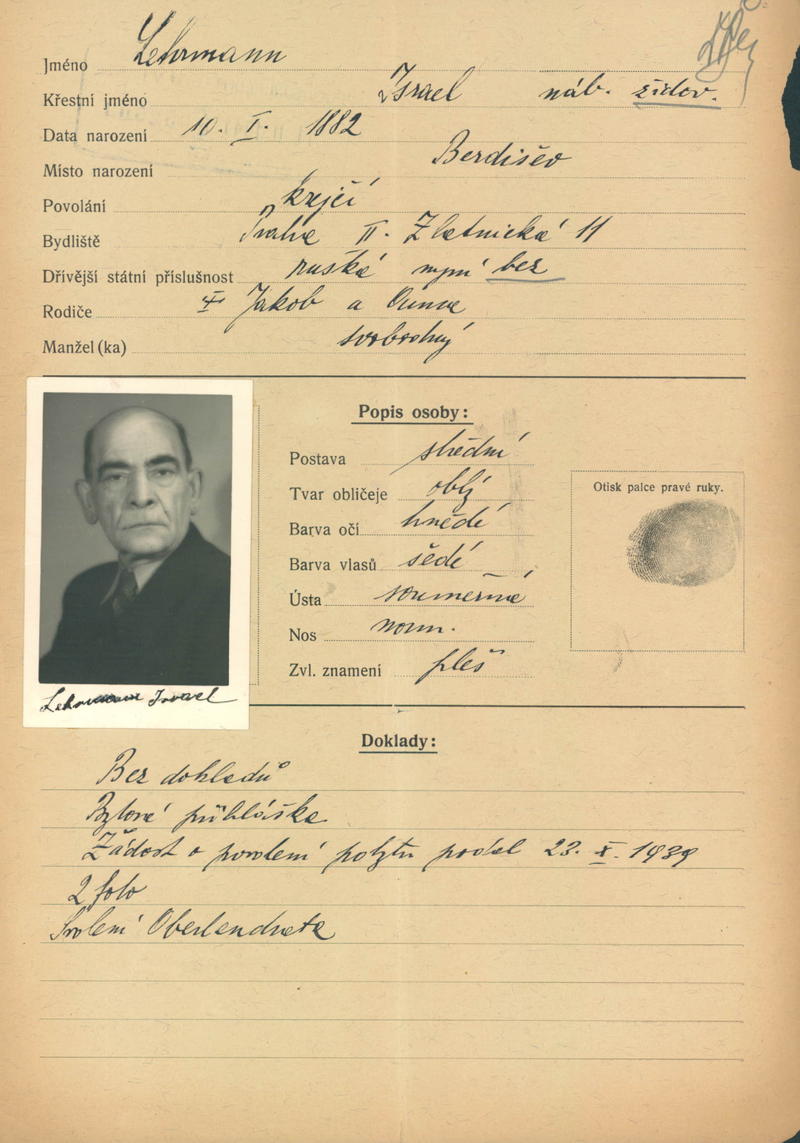 Jméno Lehrmann
Křestní jméno Israel náb. židov.
Data narození 10. I. 1882
Místo narození Berdišev
Povolání krejčí
Bydliště Praha II. Zlatnická 11
Dřívější státní příslušnost ruská nyní bez
Rodiče Jakob a
Manžel (ka) svobodný
Popis osoby:
Postava střední
Tvar obličeje oblý
Barva očí hnědé
Barva vlasů šedé
Ústa souměrné
Nos norm.
Zvl. znamení pleš
Otisk palce pravé ruky.
Lehrmann Israel
Doklady:
Bez dokladů
Bytová přihláška
Žádost o povolení pobytu podal 23. X. 1939
2 foto
Oberlandrata